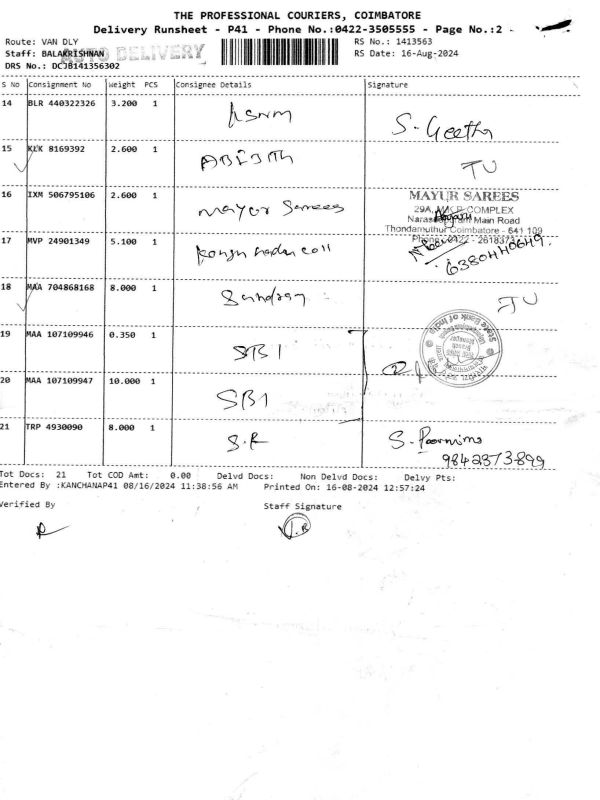 THE PROFESSIONAL COURIERS, COIMBATORE
Delivery Runsheet - P41 - Phone No.:0422-3505555 - Page No.:2 -
Route: VAN DLY RS No.: 1413563
Staff: BALAKRISHNAN AUTO DELIVERY RS Date: 16-Aug-2024
DRS No.: DCJB141356302
S No Consignment No Weight PCS Consignee Details Signature
14 BLR 440322326 3.200 1 S. Geetha
15 KLK 8169392 2.600 1 TU
16 IXM 506795106 2.600 1 mayor Sarees MAYUR SAREES
COMPLEX
Main Road
Thondamuthur Coimbatore - 641 109
17 MVP 24901349 5.100 1 6380440649.
18 MAA 704868168 8.000 1 Sundram TU
19 MAA 107109946 0.350 1 SB1 State Bank of India
20 MAA 107109947 10.000 1 SB1
21 TRP 4930090 8.000 1 S.R S. Poornima
9842373899
Tot Docs: 21 Tot COD Amt: 0.00 Delvd Docs: Non Delvd Docs: Delvy Pts:
Entered By :KANCHANAP41 08/16/2024 11:38:56 AM Printed On: 16-08-2024 12:57:24
Verified By Staff Signature